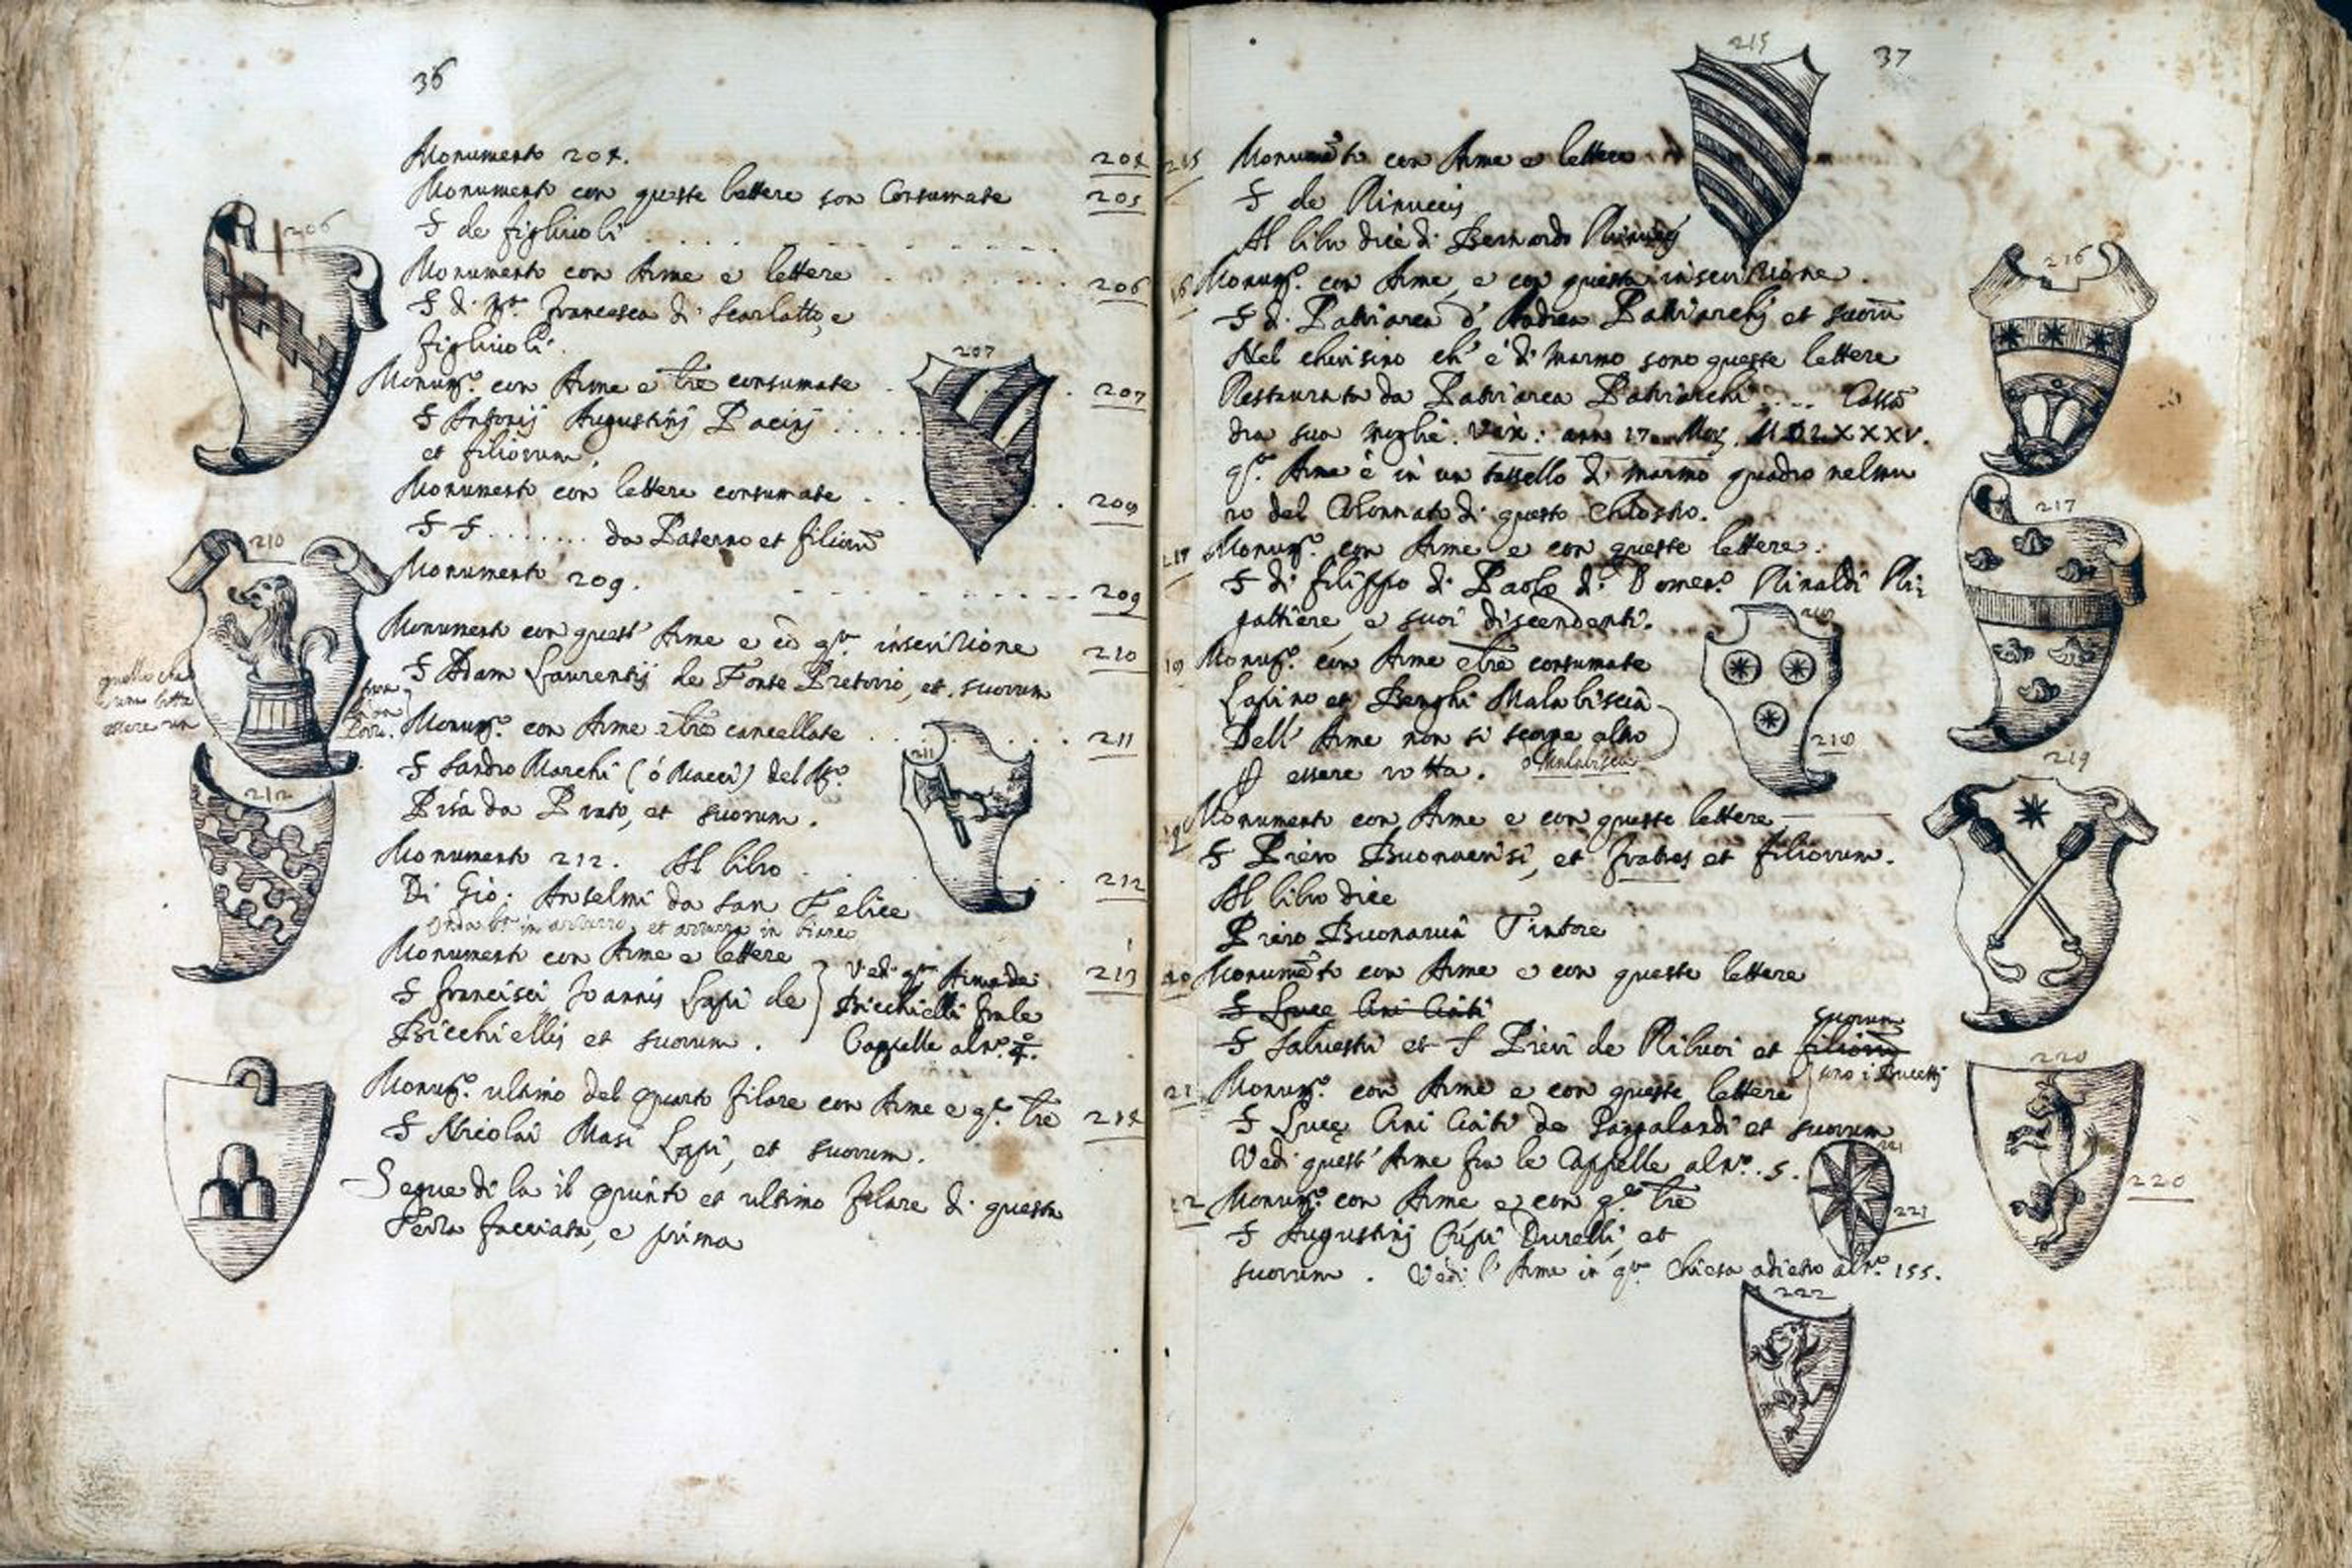 36
Monumento 204. 204
Monumento con queste lettere son Consumate 205
S de figliuoli
206
Monumento con Arme e lettere 206
S di Francesca di Scarlatto, e
figliuoli.
207
Monum.to con Arme e tre consumate 207
S Antonij Augustinj Pacinj
et filiorum.
Monumento con lettere consumate 208
S S ....... da Paterno et filioru
Monumento 209. 209
210
Monumento con quest' Arme e co q.ta inscrizione 210
S Adam Laurentij de Fonte Pretorio, et suorum
Monum.to con Arme e tre cancellate 211
211
S Sandro Marchi (ó Macci) del M.o
Pisa da Prato, et suorum.
212
Monumento 212. Al libro 212
Di Gio: Anselmi da San Felice
Monumento con Arme e lettere 213
S Francisci Joannis Lapi de
Bicchiellis et suorum.
Vedi q.ta Arme de
Bicchielli fra le
Cappelle al n.o
Monum.to ultimo del quarto filare con Arme e q.e tre 214
S Nicolai Masi Lapi, et suorum.
Segue di la il quinto et ultimo filare di questa
Terza facciata, e prima
37
215
215 Monumēto con Arme e lettere
S de Rinuccis
Al libro dice di Bernardo
Monum.to con Arme, e con questa inscrizione.
216
S di Patriarca d' Andrea Patriarchj et suoru
Nel chiusino ch' è di marmo sono queste lettere
Restaurata da Patriarca Patriarchi .... Cassā
dra sua moglie.
q.ta Arme è in un tassello di marmo quadro nel mu
ro del Colonnato di questo Chiostro.
217
217 Monum.to con Arme e con queste lettere.
S di Filippo di Paolo di Domen.o Rinaldi Ri:
gattiere e suoi discendenti.
218
Monum.to con Arme e tre consumate
Lapino et Benghi Malabiscia
Dell' Arme non si scorge altro
essere rotta. o Malabiscia
218
219
Monumento con Arme e con queste lettere
S Piero Buonaversi, et fratres et filiorum.
Al libro dice
Piero Buonaruā Tintore
Monumēto con Arme e con queste lettere
S Luce
S Salvestri et S Pieri de Ribuoi et filioru
suorum
220
Monum.to con Arme e con queste lettere
S Luce et suorum
Vedi quest' Arme fra le Cappelle al n.o 5.
221
221
220
Monum.to con Arme e con q.e tre
S Augustinj Durelli et
suorum. Vedi l' Arme in q.ta Chiesa adietro al n.o 155.
222